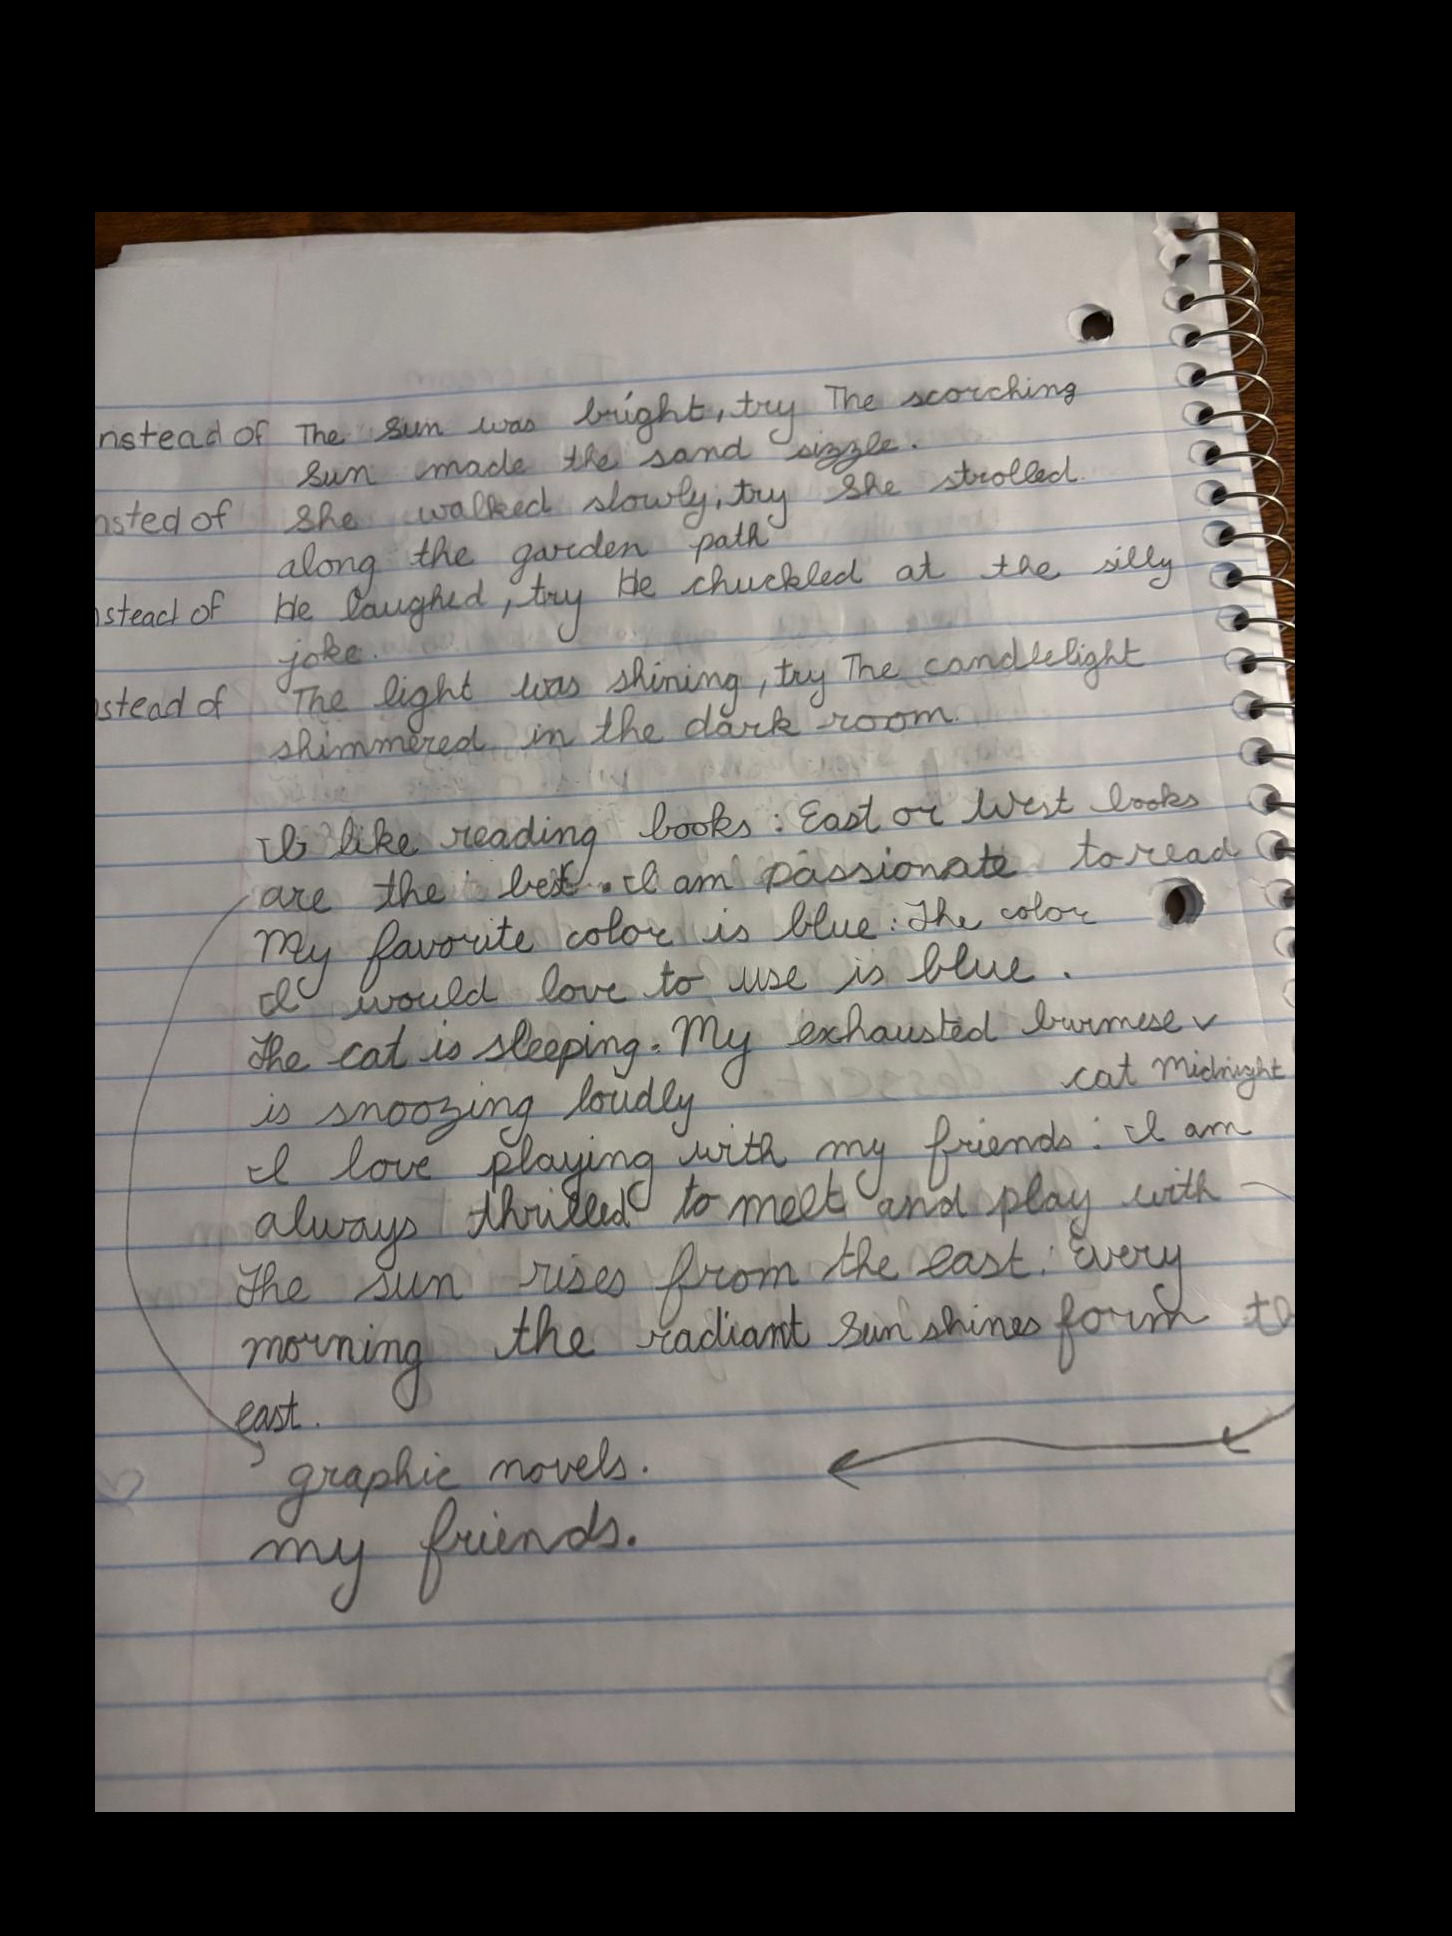 nstead of The sun was bright, try The scorching
sun made the sand sizzle.
nsted of She walked slowly, try She strolled
along the garden path
nstead of He laughed, try He chuckled at the silly
joke.
stead of The light was shining, try The candlelight
shimmered in the dark room.
I like reading books : East or West books
are the best. I am passionate to read
My favorite color is blue : The color
I would love to use is blue.
The cat is sleeping. My exhausted burmese v
cat Midnight
is snoozing loudly
I love playing with my friends : I am
always thrilled to melt and play with
The sun rises from the east : Every
morning the radiant sun shines form
east.
graphic novels.
my friends.